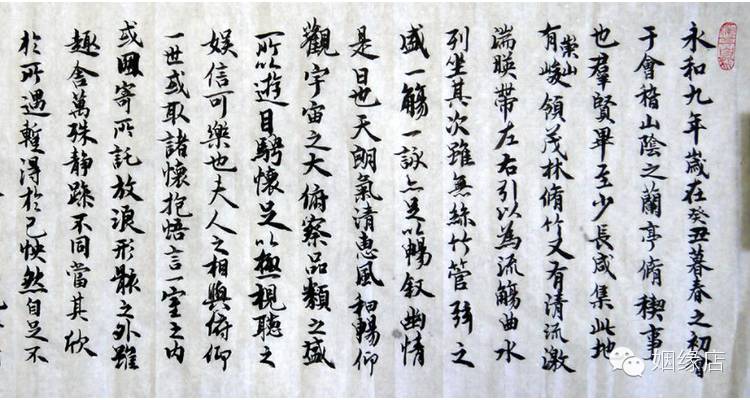 永和九年歲在癸丑暮春之初會
于會稽山陰之蘭亭脩稧事
也羣賢畢至少長咸集此地
有崇山峻領茂林脩竹又有清流激
湍暎帶左右引以為流觴曲水
列坐其次雖無絲竹管弦之
盛一觴一詠亦足以暢叙幽情
是日也天朗氣清惠風和暢仰
觀宇宙之大俯察品類之盛
所以遊目騁懷足以極視聽之
娛信可樂也夫人之相與俯仰
一世或取諸懷抱悟言一室之內
或因寄所託放浪形骸之外雖
趣舍萬殊靜躁不同當其欣
於所遇暫得於己怏然自足不
姻缘店